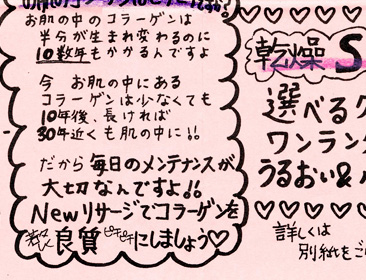 お肌の中のコラーゲンは
半分が生まれ変わるのに
10数年もかかるんですよ
今 お肌の中にある
コラーゲンは少なくても
10年後、長ければ
30年近くも肌の中に!!
だから毎日のメンテナンスが
大切なんですよ!!
Newリサージでコラーゲンを
良質 ピチピチ にしましょう♡
乾燥 S
選べるク
ワンラン
うるおい&
詳しくは
別紙をご